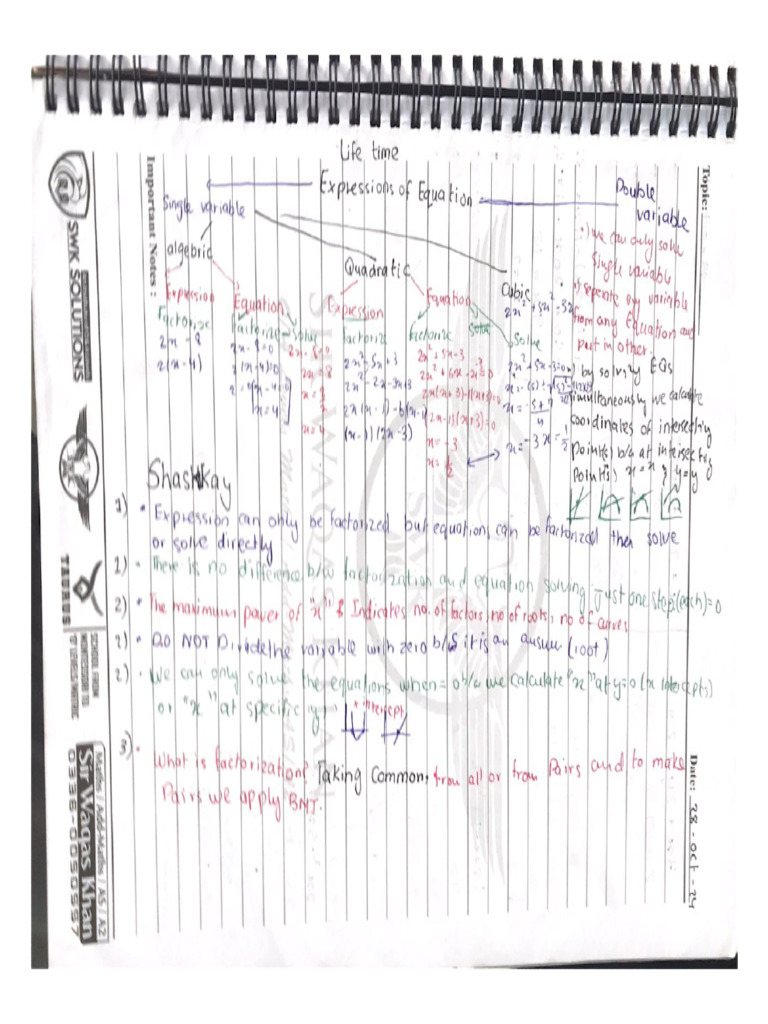 Life time
Expressions of Equation
Single variable
Double
variable
algebric
Quadratic
Cubic
Expression
Equation
Expression
Equation
Factorize
Factorize
Solve
Factorize
Factorize
Solve
Solve
2x - 8
2(x-4)
2x-8=0
2(x-4)=0
x=4
2x-8=0
2x=8
x=4
2x²-5x+3
2x²-2x-3x+3
(x-1)(2x-3)
2x²+5x-3
2x²+6x-x-3=0
2x(x+3)-1(x+3)=0
(2x-1)(x+3)=0
x=-3
x=1/2
2x²+5x-3=0
x=-3 x=1/2
•) we can only solve
Single variable
•) seperate any variable
from any Equation and
put in other.
•) by solving EQs
simultaneously we calculate
coordinates of intersecting
points b/c at intersecting
points x=x & y=y
Shashkay
1) • Expression can only be factorized but equation can be factorized then solve
or solve directly
1) • There is no difference b/w factorization and equation solving just one step (each)=0
2) • The maximum power of "x" Indicates no. of factors, no of roots, no of curves
2) • DO NOT Divide the variable with zero b/c it is an answer (root)
2) • We can only solve the equations when = 0 b/c we calculate "x" at y=0 (x intercept)
or "x" at specific "y"
x intercept
3) • What is factorization? Taking Common, from all or from Pairs and to make
Pairs we apply BNJ.
Topic:
Important Notes :
Date: 28 - oct - 24
SWK SOLUTIONS
TAURUS
SCHOOL FROM
MONTESSORI TO
'O' LEVELS / MATRIC
Maths / Add-Maths / AS / A2
Sir Waqas Khan
0336-0050557